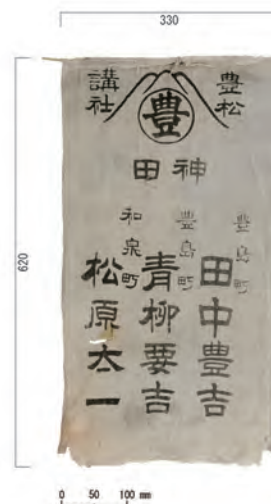 330
620
豊松
講社
豊
神田
豊島町
田中豊吉
豊島町
青柳要吉
和泉町
松原太一
0 50 100 mm